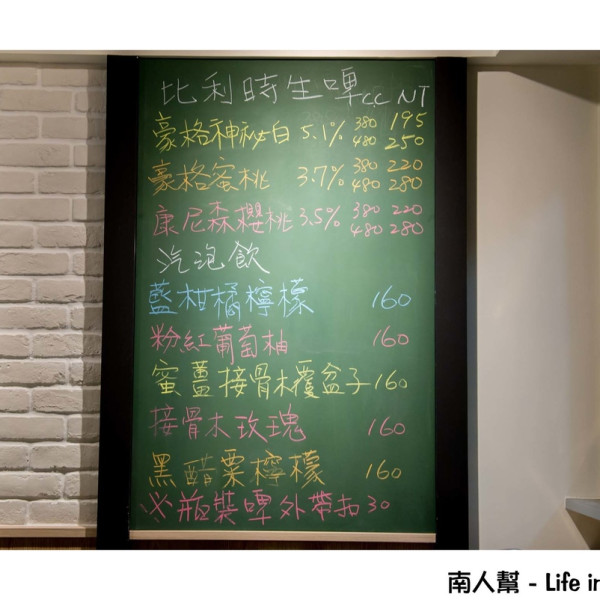 比利時生啤 CC NT
豪格神祕白 5.1% 380 195
480 250
豪格蜜桃 3.7% 380 220
480 280
康尼森櫻桃 3.5% 380 220
480 280
汽泡飲
藍柑橘檸檬 160
粉紅葡萄柚 160
蜜薑接骨木覆盆子 160
接骨木玫瑰 160
黑醋栗檸檬 160
※瓶裝啤外帶扣30
南人幫 - Life in